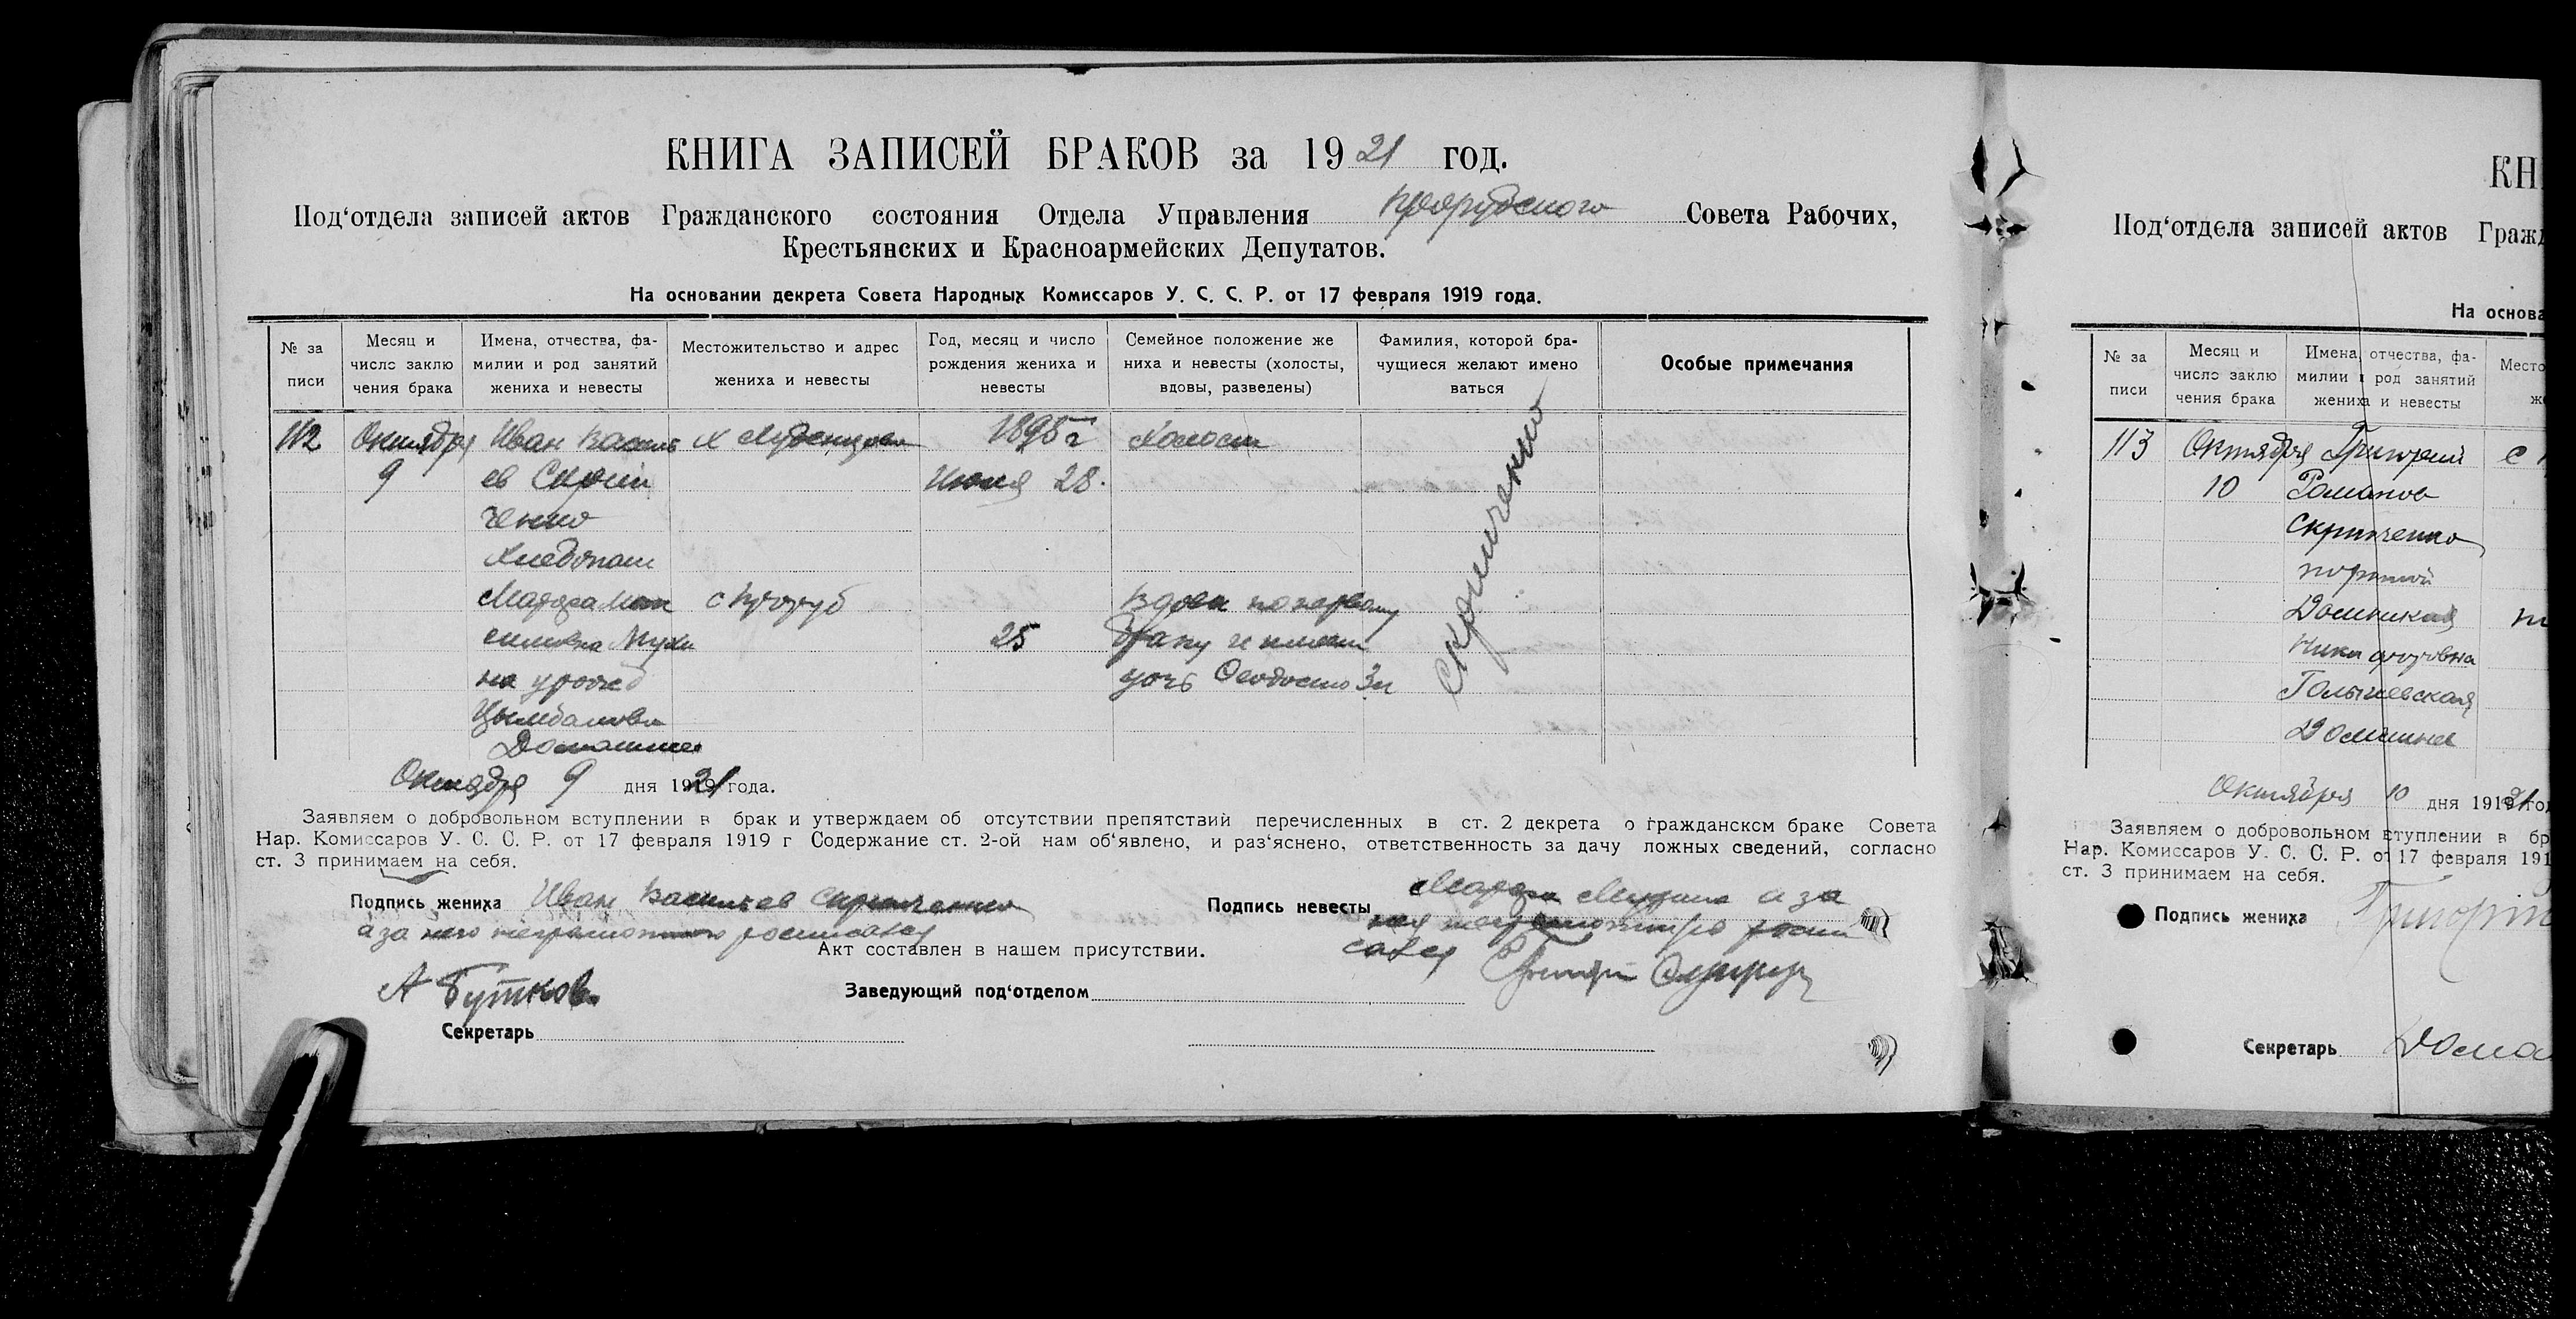 КНИГА ЗАПИСЕЙ БРАКОВ за 1921 год.
Под'отдела записей актов Гражданского состояния Отдела Управления Совета Рабочих,
Крестьянских и Красноармейских Депутатов.
На основании декрета Совета Народных Комиссаров У. С. С. Р. от 17 февраля 1919 года.
№ за писи
Месяц и число заклю чения брака
Имена, отчества, фа- милии и род занятий жениха и невесты
Местожительство и адрес жениха и невесты
Год, месяц и число рождения жениха и невесты
Семейное положение же ниха и невесты (холосты, вдовы, разведены)
Фамилия, которой бра- чущиеся желают имено ваться
Особые примечания
112 Октября Иван Василь х 1895 г Холост
9 ев Скрип Июня 28.
ченко
Хлебопаш
с
Вдова по первому
25 браку
на урожд дочь 3л
Цымбалова
Домашнее
Скрипченко
Октября 9 дня 1921 года.
Заявляем о добровольном вступлении в брак и утверждаем об отсутствии препятствий перечисленных в ст. 2 декрета о гражданском браке Совета
Нар. Комиссаров У. С. С. Р. от 17 февраля 1919 г Содержание ст. 2-ой нам об'явлено, и раз'яснено, ответственность за дачу ложных сведений, согласно
ст. 3 принимаем на себя.
Подпись жениха Иван Васильев Скрипченко
а за него неграмотного росписался
Подпись невесты а за
Акт составлен в нашем присутствии.
А Бутков
Заведующий под'отделом
Секретарь
КН
Под'отдела записей актов Гражд
На основа
№ за писи
Месяц и число заклю чения брака
Имена, отчества, фа- милии и род занятий жениха и невесты
Место
ж
113 Октября Григорий с
10 Романов
Скрипченко
портной
Домникия
Никифоровна
Голычевская
Домашнее
Октября 10 дня 1921 го
Заявляем о добровольном вступлении в бр
Нар. Комиссаров У. С. С. Р. от 17 февраля 191
ст. 3 принимаем на себя.
Подпись жениха
Секретарь